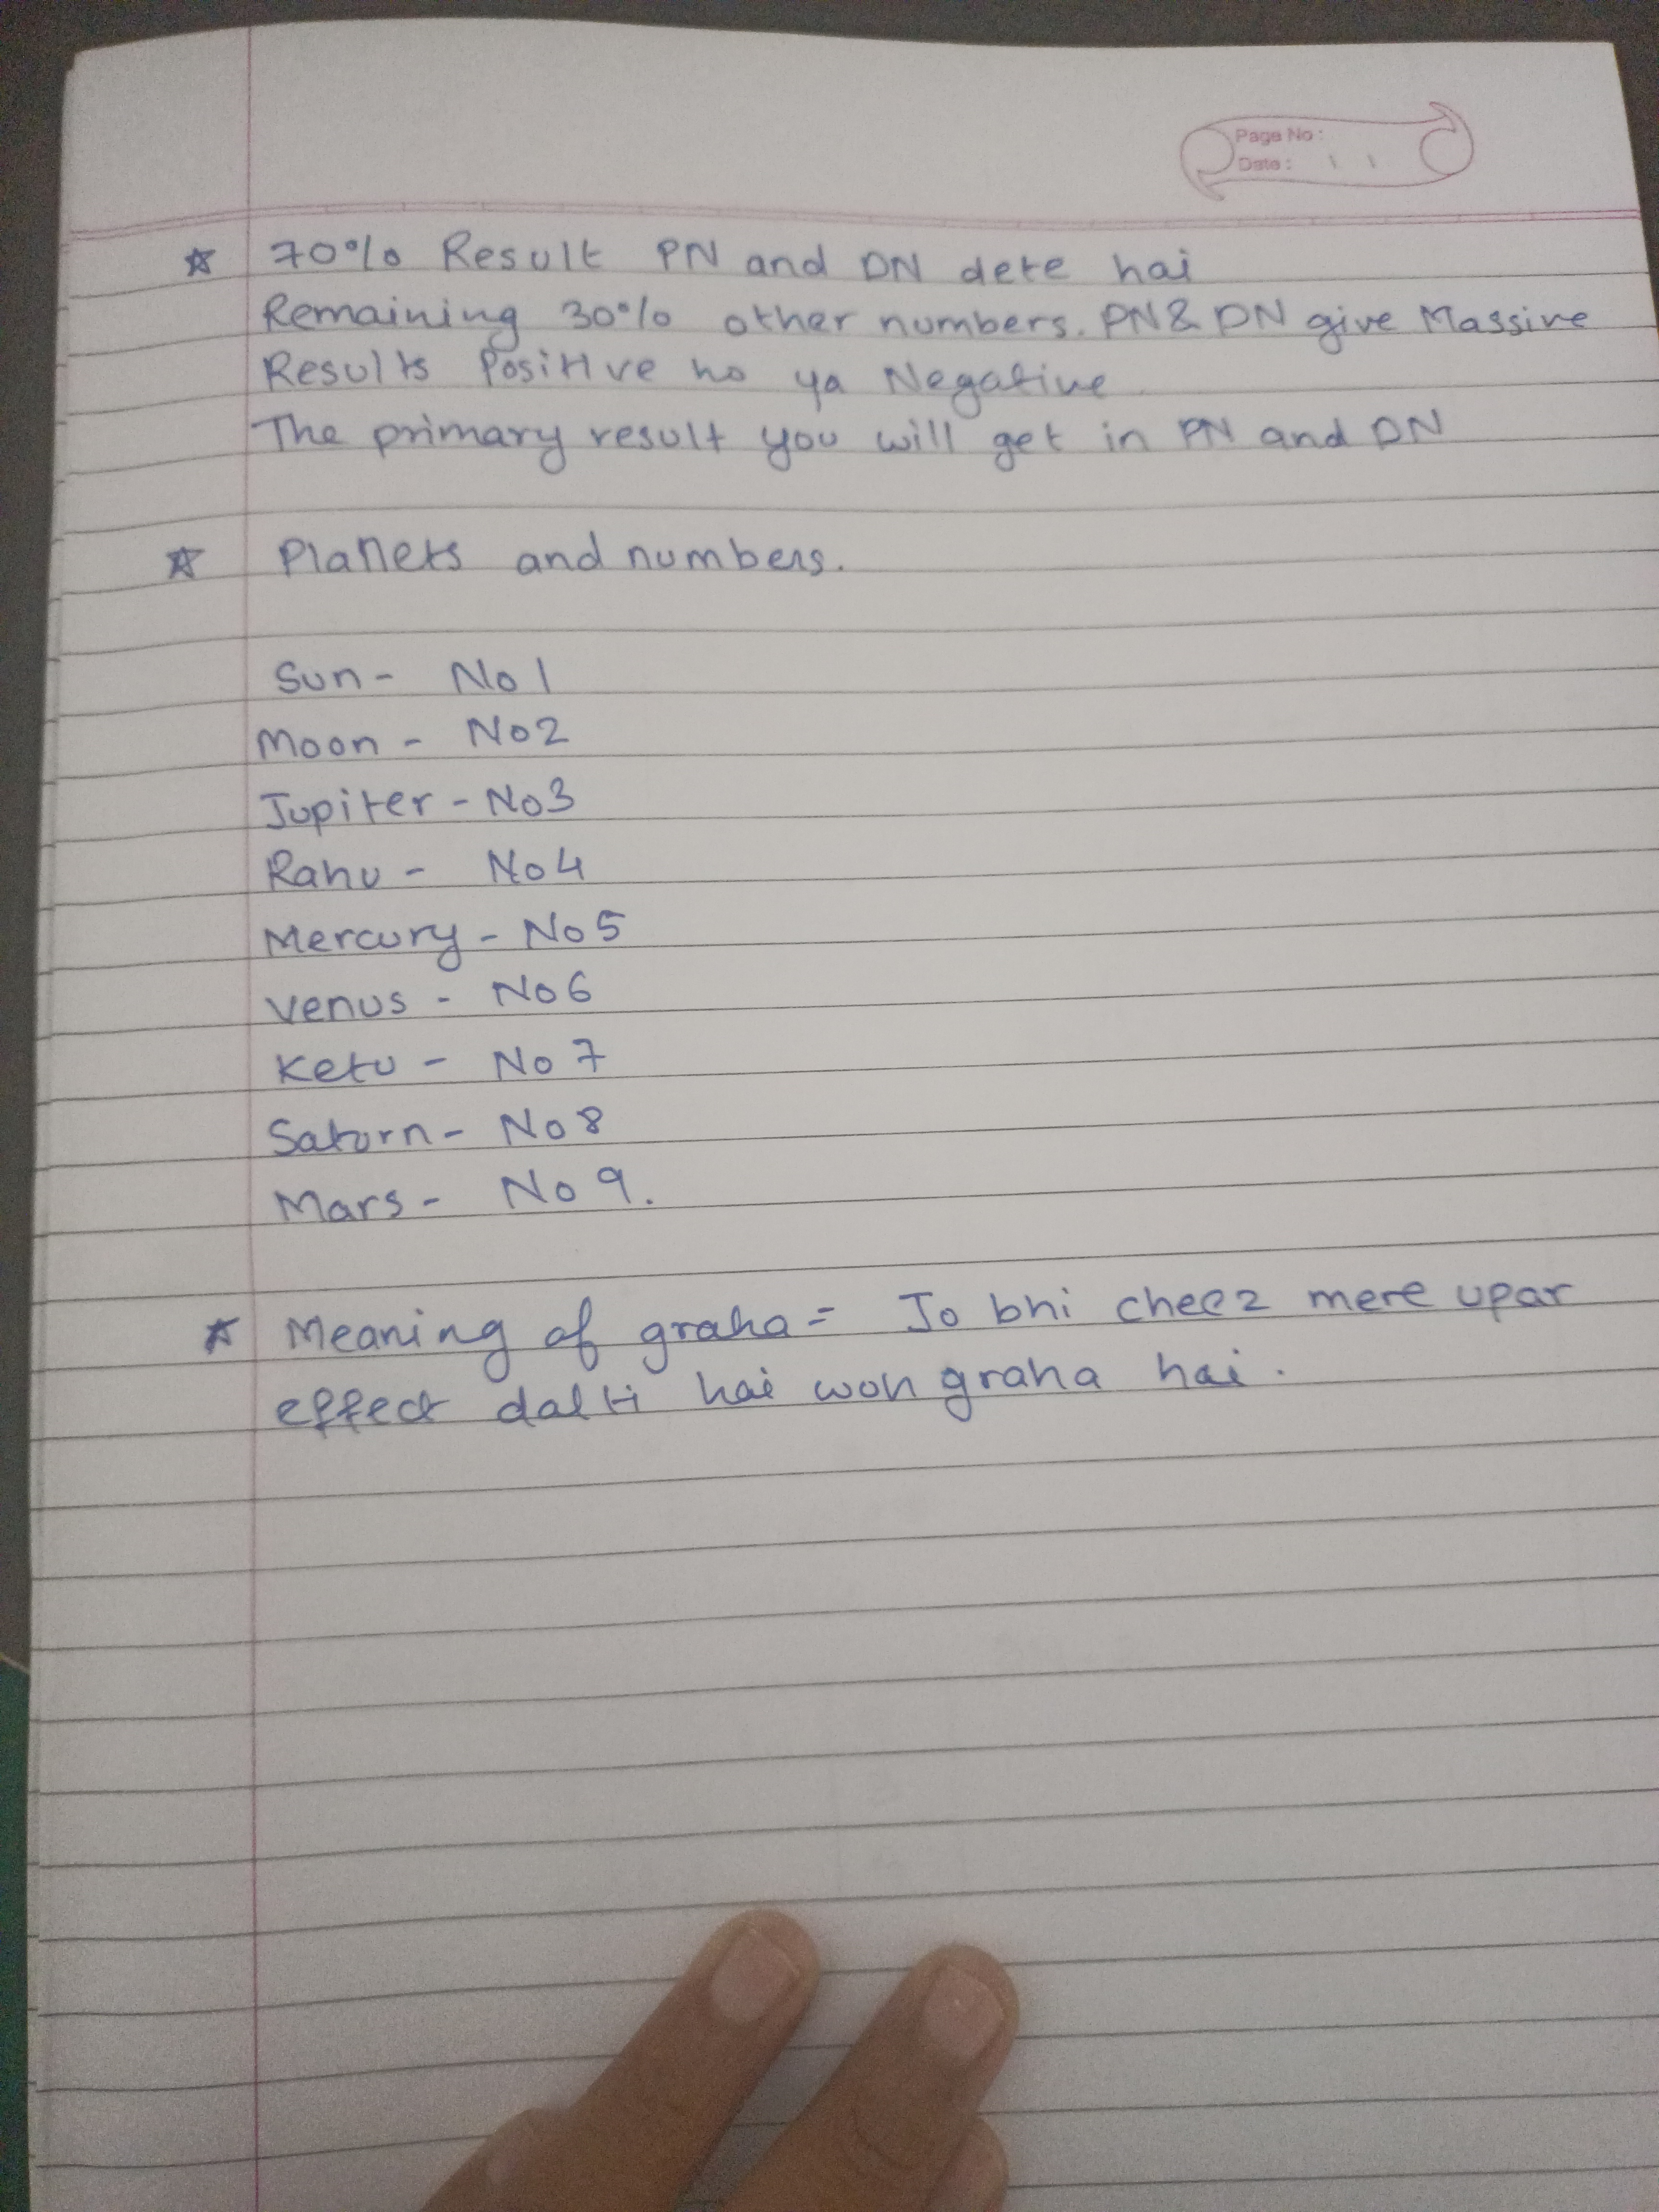 Page No:
Date:
☆ 70% Result PN and DN dete hai
Remaining 30% other numbers. PN & DN give Massive
Results Positive ho ya Negative
The primary result you will get in PN and DN
☆ Planets and numbers.
Sun - No 1
Moon - No 2
Jupiter - No 3
Rahu - No 4
Mercury - No 5
Venus - No 6
Ketu - No 7
Saturn - No 8
Mars - No 9.
☆ Meaning of graha = Jo bhi cheez mere upar
effect dalti hai woh graha hai.